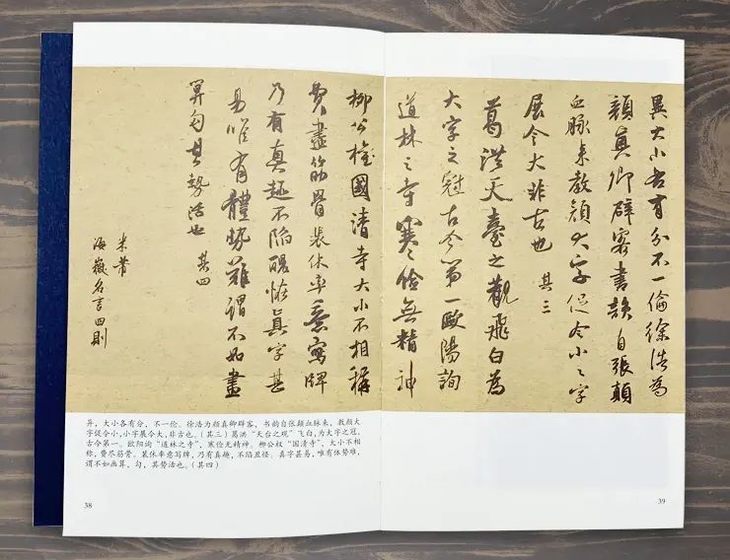 異大小各有分不一倫徐浩為
顔真卿辟客書韻自張顛
血脉来教顔大字促令小々字
展令大非古也 其三
葛洪天臺之觀飛白為
大字之冠古今第一歐陽詢
道林之寺寒儉無精神
柳公權國清寺大小不相稱
費盡筋骨裴休率意寫牌
乃有真趣不陷醜怪真字甚
易唯有體勢難謂不如畫
算勻其勢活也 其四
米芾
海嶽名言四則
异，大小各有分，不一伦。徐浩为颜真卿辟客，书韵自张颠血脉来，教颜大
字促令小，小字展令大，非古也。（其三）葛洪“天台之观”飞白，为大字之冠，
古今第一。欧阳询“道林之寺”，寒俭无精神。柳公权“国清寺”，大小不相
称，费尽筋骨。裴休率意写牌，乃有真趣，不陷丑怪。真字甚易，唯有体势难，
谓不如画算，匀，其势活也。（其四）
38
39